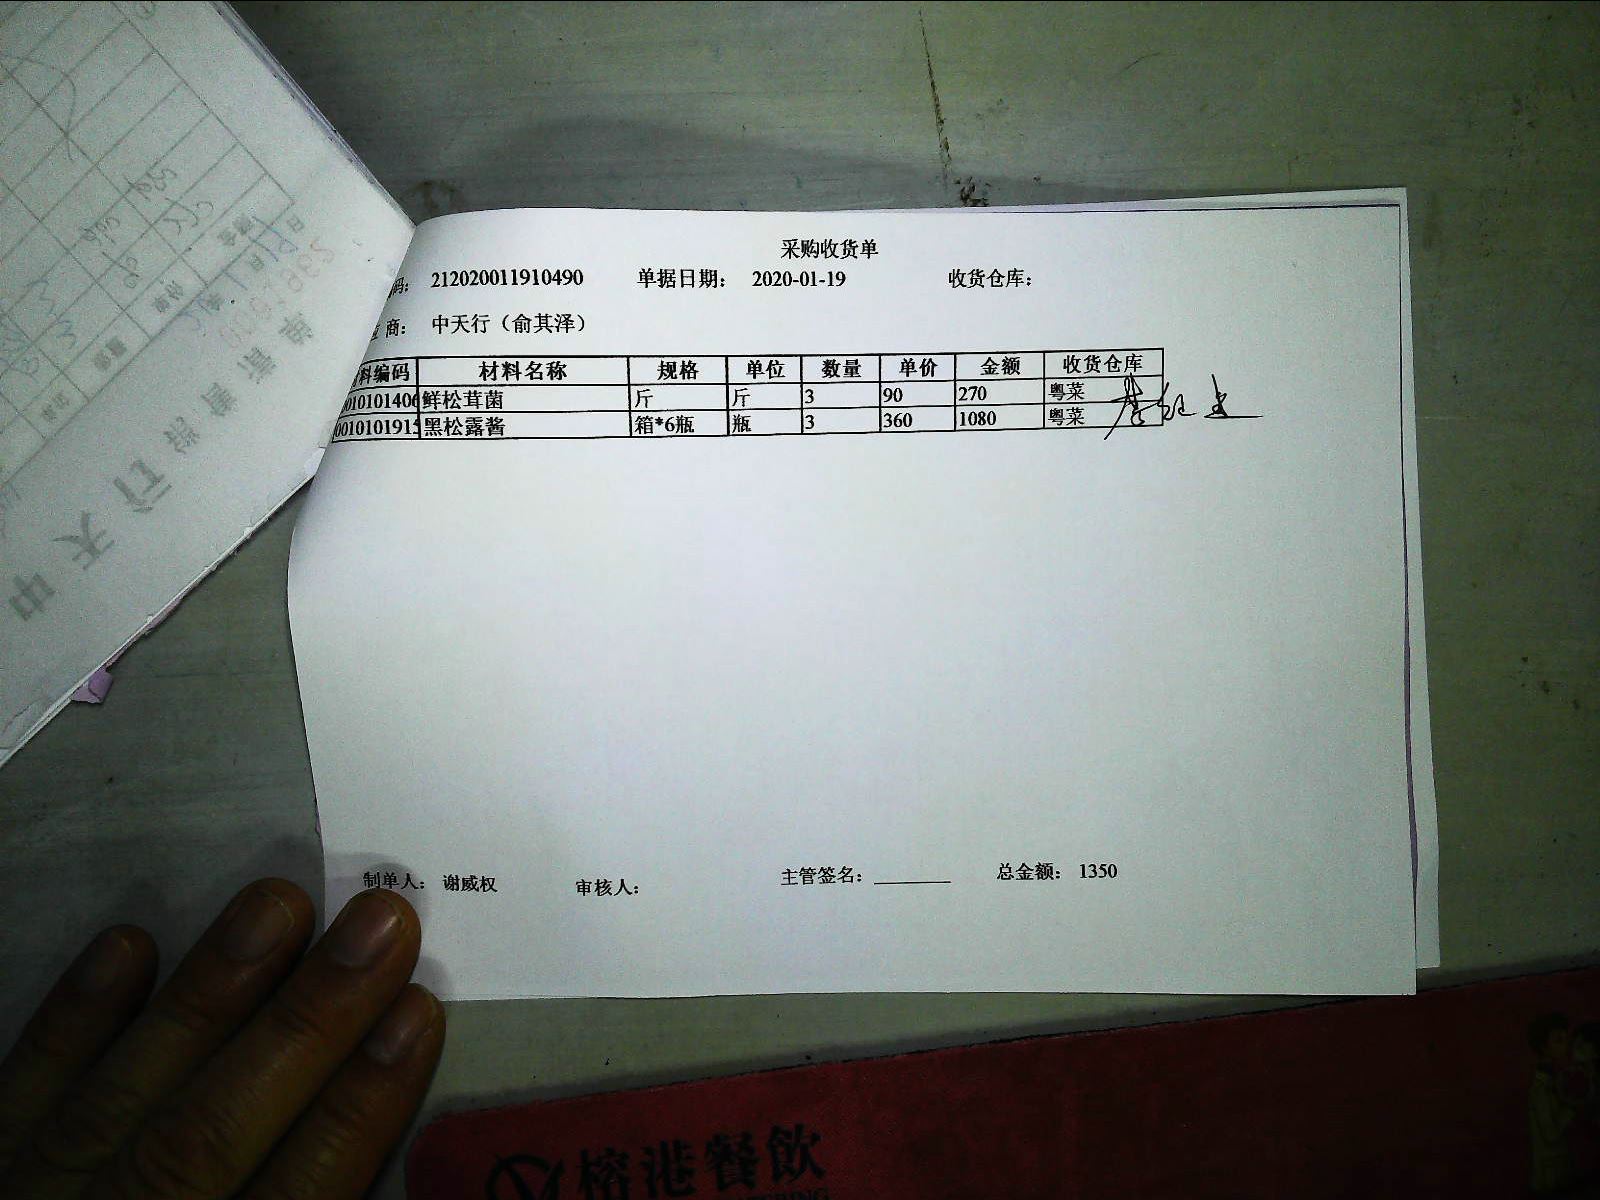 采购收货单
码： 212020011910490 单据日期： 2020-01-19 收货仓库：
商： 中天行（俞其泽）
料编码 材料名称 规格 单位 数量 单价 金额 收货仓库
0010101406 鲜松茸菌 斤 斤 3 90 270 粤菜
0010101915 黑松露酱 箱*6瓶 瓶 3 360 1080 粤菜
制单人： 谢威权 审核人： 主管签名： ________ 总金额： 1350
中天行
榕港餐飲